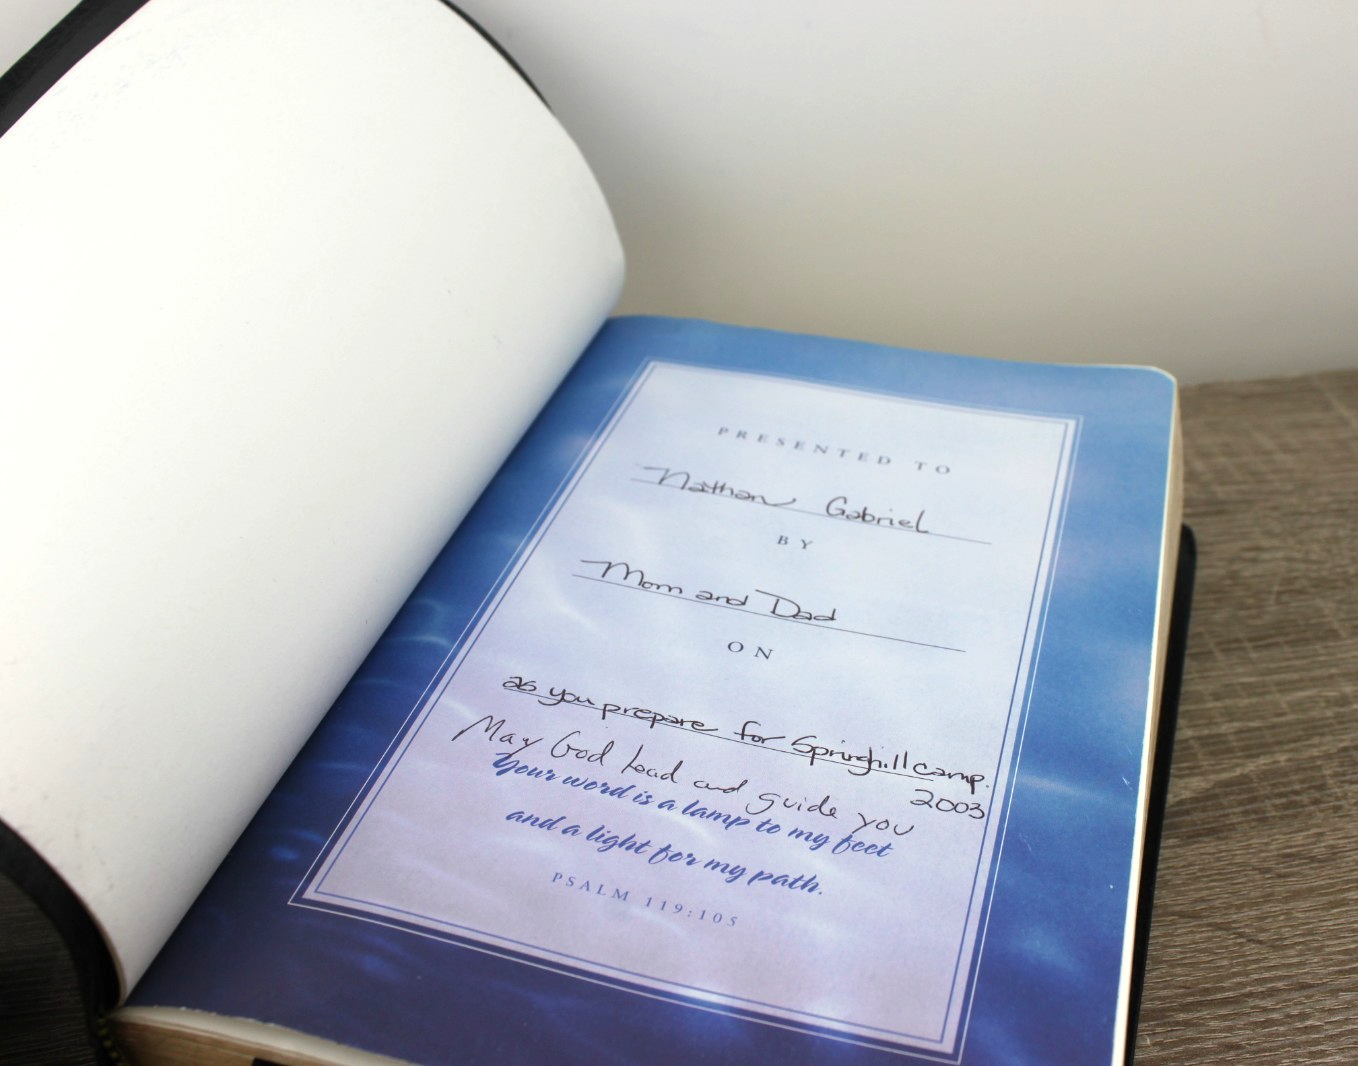 PRESENTED TO
Nathan Gabriel
BY
Mom and Dad
ON
as you prepare for Springhill camp.
2003
May God lead and guide you
Your word is a lamp to my feet
and a light for my path.
PSALM 119:105